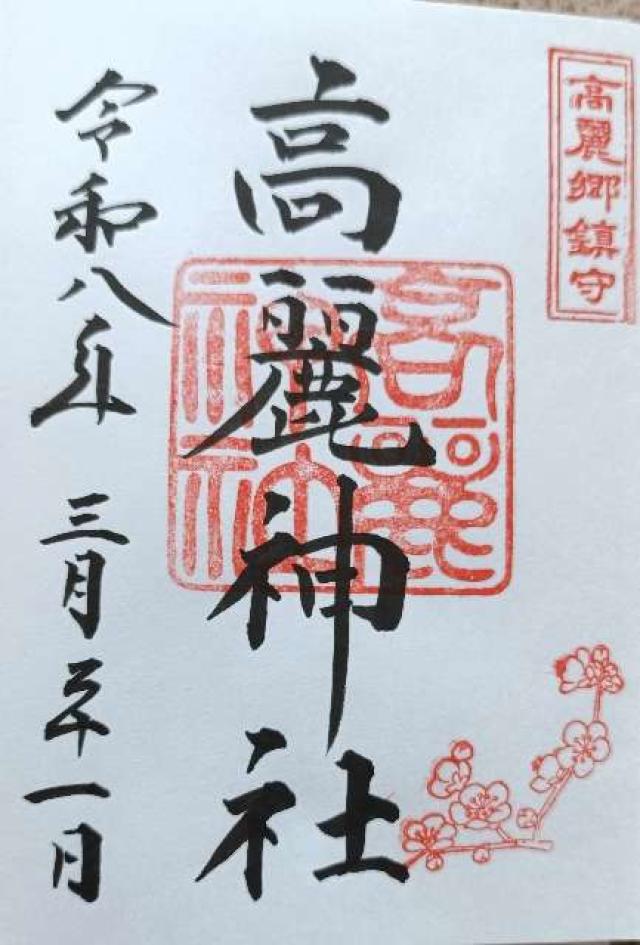 高麗郷鎮守
高麗神社
高麗
神社
令和八年 三月